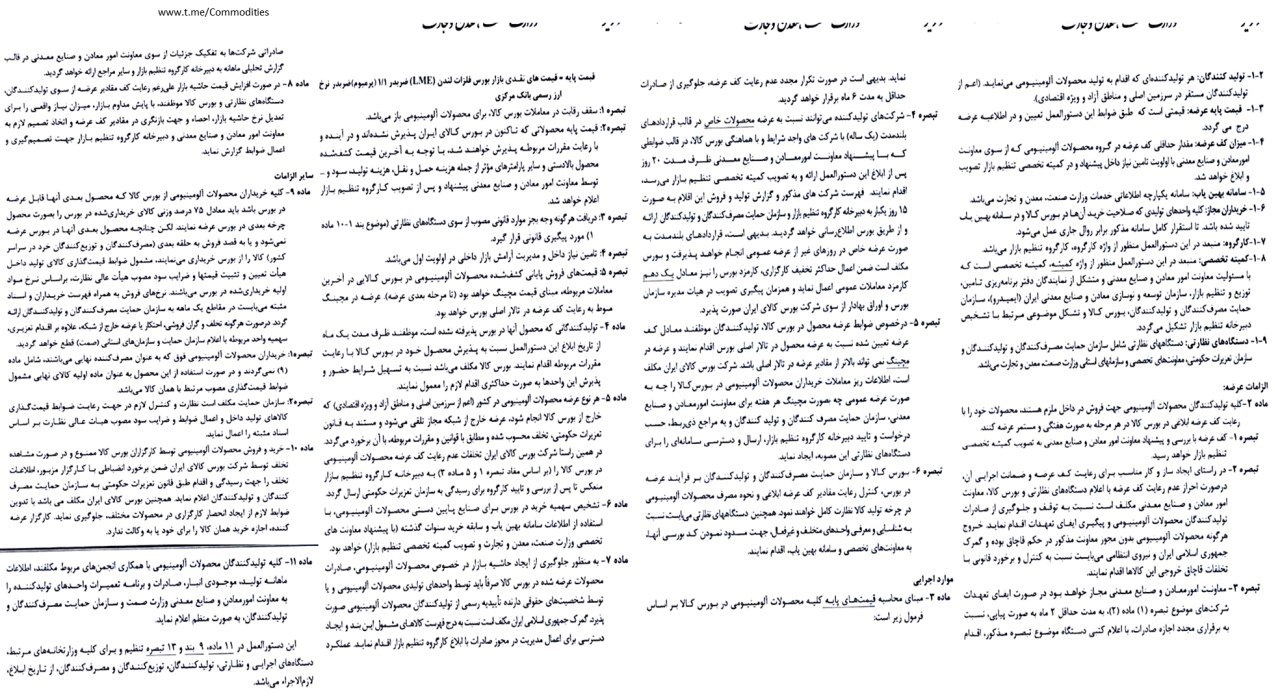 www.t.me/Commodities
۱-۲- تولید کنندگان: هر تولیدکننده‌ای که اقدام به تولید محصولات آلومینیومی می‌نماید. (اعم از
تولیدکنندگان مستقر در سرزمین اصلی و مناطق آزاد و ویژه اقتصادی).
۱-۳- قیمت پایه عرضه: قیمتی است که طبق ضوابط این دستورالعمل تعیین و در اطلاعیه عرضه
درج می گردد.
۱-۴- میزان کف عرضه: مقدار حداقلی کف عرضه در گروه محصولات آلومینیومی که از سوی معاونت
امورمعادن و صنایع معدنی با اولویت تامین نیاز داخل پیشنهاد و در کمیته تخصصی تنظیم بازار تصویب
و ابلاغ خواهد شد.
۱-۵- سامانه بهین یاب: سامانه یکپارچه اطلاعاتی خدمات وزارت صنعت، معدن و تجارت می‌باشد
۱-۶- خریداران مجاز: کلیه واحدهای تولیدی که صلاحیت خرید آن‌ها در بورس کالا و در سامانه بهین یاب
تایید شده باشد. تا استقرار کامل سامانه مذکور برابر روال جاری عمل می‌شود.
۱-۷- کارگروه: منبعد در این دستورالعمل منظور از واژه کارگروه، کارگروه تنظیم بازار می‌باشد
۱-۸- کمیته تخصصی: منبعد در این دستورالعمل منظور از واژه کمیته، کمیته تخصصی است که
با مسئولیت معاونت امور معادن و صنایع معدنی و متشکل از نمایندگان دفتر برنامه‌ریزی تامین،
توزیع و تنظیم بازار، سازمان توسعه و نوسازی معادن و صنایع معدنی ایران (ایمیدرو)، سازمان
حمایت مصرف‌کنندگان و تولیدکنندگان، بورس کالا و تشکل موضوعی مرتبط با تشخیص
دبیرخانه تنظیم بازار تشکیل می‌گردد.
۱-۹- دستگاه‌های نظارتی: دستگاههای نظارتی شامل سازمان حمایت مصرف‌کنندگان و تولیدکنندگان و
سازمان تعزیرات حکومتی، معاونت‌های تخصصی و سازمانهای استانی وزارت صنعت، معدن و تجارت می‌باشد.
الزامات عرضه:
ماده ۲- کلیه تولیدکنندگان محصولات آلومینیومی جهت فروش در داخل ملزم هستند، محصولات خود را با
رعایت کف عرضه ابلاغی در بورس کالا در هر مرحله به صورت هفتگی و مستمر عرضه کنند
تبصره ۱- کف عرضه با بررسی و پیشنهاد معاونت امور معادن و صنایع معدنی به تصویب کمیته تخصصی
تنظیم بازار خواهد رسید.
تبصره ۲- در راستای ایجاد ساز و کار مناسب برای رعایت کف عرضه و ضمانت اجرایی آن،
درصورت احراز عدم رعایت کف عرضه با اعلام دستگاه‌های نظارتی و بورس کالا، معاونت
امور معادن و صنایع معدنی مکلف است نسبت به توقف و جلوگیری از صادرات
تولیدکنندگان محصولات آلومینیومی و پیگیری ایفای تعهدات اقدام نماید. خروج
هرگونه محصولات آلومینیومی بدون مجوز معاونت مذکور در حکم قاچاق بوده و گمرک
جمهوری اسلامی ایران و نیروی انتظامی می‌بایست نسبت به کنترل و برخورد قانونی با
تخلفات قاچاق خروجی این کالاها اقدام نمایند.
تبصره ۳- معاونت امورمعادن و صنایع معدنی مجاز خواهد بود در صورت ایفای تعهدات
شرکت‌های موضوع تبصره (۱) ماده (۲)، به مدت حداقل ۲ ماه به صورت پیاپی، نسبت
به برقراری مجدد اجازه صادرات، با اعلام کتبی دستگاه موضوع تبصره مذکور، اقدام
نماید. بدیهی است در صورت تکرار مجدد عدم رعایت کف عرضه، جلوگیری از صادرات
حداقل به مدت ۶ ماه برقرار خواهد گردید.
تبصره ۴- شرکت‌های تولیدکننده می‌توانند نسبت به عرضه محصولات خاص در قالب قراردادهای
بلندمدت (یک ساله) با شرکت های واجد شرایط و با هماهنگی بورس کالا، در قالب ضوابطی
که با پیشنهاد معاونت امورمعادن و صنایع معدنی ظرف مدت ۲۰ روز
پس از ابلاغ این دستورالعمل ارائه و به تصویب کمیته تخصصی تنظیم بازار می‌رسد،
اقدام نمایند. فهرست شرکت های مذکور و گزارش تولید و فروش این اقلام به صورت
۱۵ روز یکبار به دبیرخانه کارگروه تنظیم بازار و سازمان حمایت مصرف‌کنندگان و تولیدکنندگان ارائه
و از طریق بورس اطلاع‌رسانی خواهد گردید. بدیهی است، قراردادهای بلندمدت به
صورت عرضه خاص در روزهای غیر از عرضه عمومی انجام خواهد پذیرفت و بورس
مکلف است ضمن اعمال حداکثر تخفیف کارگزاری، کارمزد بورس را نیز معادل یک دهم
کارمزد معاملات عمومی اعمال نماید و همزمان پیگیری تصویب در هیات مدیره سازمان
بورس و اوراق بهادار از سوی شرکت بورس کالای ایران صورت پذیرد.
تبصره ۵- درخصوص ضوابط عرضه محصول در بورس کالا، تولیدکنندگان موظفند معادل کف
عرضه تعیین شده نسبت به عرضه محصول در تالار اصلی بورس اقدام نمایند و عرضه در
مچینگ نمی تواند بالاتر از مقادیر عرضه در تالار اصلی باشد. شرکت بورس کالای ایران مکلف
است، اطلاعات ریز معاملات خریداران محصولات آلومینیومی در بورس کالا را چه به
صورت عرضه عمومی چه بصورت مچینگ هر هفته برای معاونت امورمعادن و صنایع
معدنی، سازمان حمایت مصرف کنندگان و تولید کنندگان و به مراجع ذی‌ربط، حسب
درخواست و تایید دبیرخانه کارگروه تنظیم بازار، ارسال و دسترسی سامانه‌ای را برای
دستگاه‌های نظارتی این مصوبه، ایجاد نماید.
تبصره ۶- بورس کالا و سازمان حمایت مصرف‌کنندگان و تولیدکنندگان بر فرآیند عرضه
در بورس، کنترل رعایت مقادیر کف عرضه ابلاغی و نحوه مصرف محصولات آلومینیومی
در چرخه تولید کالا نظارت کامل خواهند نمود. همچنین دستگاههای نظارتی می‌بایست نسبت
به شناسایی و معرفی واحدهای متخلف و غیرفعال، جهت مسدود نمودن کد بورسی آنها،
به معاونت‌های تخصصی و سامانه بهین یاب، اقدام نمایند.
موارد اجرایی
ماده ۳- مبنای محاسبه قیمت‌های پایه کلیه محصولات آلومینیومی در بورس کالا بر اساس
فرمول زیر است:
قیمت پایه = قیمت های نقدی بازار بورس فلزات لندن (LME) ضربدر ۱/۱ (پرمیوم)ضربدر نرخ
ارز رسمی بانک مرکزی
تبصره ۱: سقف رقابت در معاملات بورس کالا، برای محصولات آلومینیومی باز می‌باشد.
تبصره ۲: قیمت پایه محصولاتی که تاکنون در بورس کالای ایران پذیرش نشده‌اند و در آینده و
با رعایت مقررات مربوطه پذیرش خواهند شد، با توجه به آخرین قیمت کشف‌شده
محصول بالادستی و سایر پارامترهای مؤثر از جمله هزینه حمل و نقل، هزینه تولید، سود و -
توسط معاونت امور معادن و صنایع معدنی پیشنهاد و پس از تصویب کارگروه تنظیم بازار
اعلام خواهد شد.
تبصره ۳: دریافت هرگونه وجه بجز موارد قانونی مصوب از سوی دستگاه‌های نظارتی (موضوع بند ۱۰-۱ ماده
۱) مورد پیگیری قانونی قرار گیرد.
تبصره ۴: تامین نیاز داخل و مدیریت آرامش بازار داخلی در اولویت اول می‌باشد.
تبصره ۵: قیمت‌های فروش پایانی کشف‌شده محصولات آلومینیومی در بورس کالایی در آخرین
معاملات مربوطه، مبنای قیمت مچینگ خواهد بود (تا مرحله بعدی عرضه). عرضه در مچینگ
منوط به رعایت کف عرضه در تالار اصلی بورس خواهد بود.
ماده ۴- تولیدکنندگانی که محصول آنها در بورس پذیرفته شده است، موظفند ظرف مدت یک ماه
از تاریخ ابلاغ این دستورالعمل نسبت به پذیرش محصول خود در بورس کالا با رعایت
مقررات مربوطه اقدام نمایند. بورس کالا مکلف می‌باشد نسبت به تسهیل شرایط حضور و
پذیرش این واحدها به صورت حداکثری اقدام لازم را معمول نمایند.
ماده ۵- هر نوع عرضه محصولات آلومینیومی در کشور (اعم از سرزمین اصلی و مناطق آزاد و ویژه اقتصادی) که
خارج از بورس کالا انجام شود، عرضه خارج از شبکه مجاز تلقی می‌شود و مستند به قانون
تعزیرات حکومتی، تخلف محسوب شده و مطابق با قوانین و مقررات مربوطه، با آن برخورد می‌گردد.
در همین راستا شرکت بورس کالای ایران تخلفات عدم رعایت کف عرضه محصولات آلومینیومی
در بورس کالا را (بر اساس مفاد تبصره ۱ و ۵ ماده ۲) به دبیرخانه کارگروه تنظیم بازار
منعکس تا پس از بررسی و تایید کارگروه برای رسیدگی به سازمان تعزیرات حکومتی ارسال گردد.
ماده ۶- تشخیص سهمیه خرید در بورس برای صنایع پایین دستی محصولات آلومینیومی، با
استفاده از اطلاعات سامانه بهین یاب و سابقه خرید سنوات گذشته (با پیشنهاد معاونت های
تخصصی وزارت صنعت، معدن و تجارت و تصویب کمیته تخصصی تنظیم بازار) خواهد بود.
ماده ۷- به منظور جلوگیری از ایجاد حاشیه بازار در خصوص محصولات آلومینیومی، صادرات
محصولات عرضه شده در بورس کالا صرفاً باید توسط واحدهای تولیدی آلومینیومی و یا
توسط شخصیت‌های حقوقی دارنده تأییدیه رسمی از تولیدکنندگان محصولات آلومینیومی صورت
پذیرد. گمرک جمهوری اسلامی ایران مکلف است نسبت به درج فهرست کالاهای مشمول این بند و ایجاد
دسترسی برای اعمال مدیریت در مجوز صادرات با ابلاغ کارگروه تنظیم بازار اقدام نماید. عملکرد
صادراتی شرکت‌ها به تفکیک جزئیات از سوی معاونت امور معادن و صنایع معدنی در قالب
گزارش تحلیلی ماهانه به دبیرخانه کارگروه تنظیم بازار و سایر مراجع ارائه خواهد گردید.
ماده ۸- در صورت افزایش قیمت حاشیه بازار علی‌رغم رعایت کف مقادیر عرضه از سوی تولیدکنندگان،
دستگاه‌های نظارتی و بورس کالا موظفند، با پایش مداوم بازار، میزان نیاز واقعی را برای
تعدیل نرخ حاشیه بازار، احصاء و جهت بازنگری در مقادیر کف عرضه و اتخاذ تصمیم لازم به
معاونت امور معادن و صنایع معدنی و دبیرخانه کارگروه تنظیم بازار جهت تصمیم‌گیری و
اعمال ضوابط گزارش نماید.
سایر الزامات
ماده ۹- کلیه خریداران محصولات آلومینیومی از بورس کالا که محصول بعدی آنها قابل عرضه
در بورس باشد باید معادل ۷۵ درصد وزنی کالای خریداری‌شده در بورس را بصورت محصول
چرخه بعدی در بورس عرضه نمایند. لکن چنانچه محصول بعدی آنها در بورس عرضه
نمی‌شود و یا به قصد فروش به حلقه بعدی (مصرف‌کنندگان و توزیع‌کنندگان خرد در سراسر
کشور) کالا را از بورس خریداری می‌نمایند، مشمول ضوابط قیمت‌گذاری کالای تولید داخل
هیأت تعیین و تثبیت قیمتها و ضرایب سود مصوب هیأت عالی نظارت، براساس نرخ مواد
اولیه خریداری‌شده در بورس می‌باشند. نرخ‌های فروش به همراه فهرست خریداران و اسناد
مثبته می‌بایست در مقاطع یک ماهه به سازمان حمایت مصرف‌کنندگان و تولیدکنندگان ارائه
گردد. درصورت هرگونه تخلف و گران فروشی، احتکار یا عرضه خارج از شبکه، علاوه بر اقدام تعزیری،
سهمیه واحد مربوطه با اعلام سازمان حمایت و سازمان‌های استانی (صمت) قطع خواهد گردید.
تبصره۱: خریداران محصولات آلومینیومی فوق که به عنوان مصرف‌کننده نهایی می‌باشند، شامل ماده
(۹) نمی‌گردند و در صورت استفاده از این محصول به عنوان ماده اولیه کالای نهایی مشمول
ضوابط قیمت‌گذاری مصوب مرتبط با همان کالا می‌باشد.
تبصره۲: سازمان حمایت مکلف است نظارت و کنترل لازم در جهت رعایت ضوابط قیمت‌گذاری
کالاهای تولید داخل و اعمال ضوابط و ضرایب سود مصوب هیات عالی نظارت بر اساس
اسناد مثبته را اعمال نماید.
ماده ۱۰- خرید و فروش محصولات آلومینیومی توسط کارگزاران بورس کالا ممنوع و در صورت مشاهده
تخلف توسط شرکت بورس کالای ایران ضمن برخورد انضباطی با کارگزار مزبور، اطلاعات
تخلف را جهت رسیدگی و اقدام طبق قانون تعزیرات حکومتی به سازمان حمایت مصرف
کنندگان و تولیدکنندگان اعلام نماید. همچنین بورس کالای ایران مکلف می باشد با تدوین
ضوابط لازم از ایجاد انحصار کارگزاری در محصولات مختلف، جلوگیری نماید. کارگزار عرضه
کننده، اجازه خرید همان کالا را برای خود یا به وکالت ندارد.
ماده ۱۱- کلیه تولیدکنندگان محصولات آلومینیومی با همکاری انجمن‌های مربوط مکلفند، اطلاعات
ماهانه تولید، موجودی انبار، صادرات و برنامه تعمیرات واحدهای تولیدکننده را
به معاونت امورمعادن و صنایع معدنی وزارت صمت و سازمان حمایت مصرف‌کنندگان و
تولیدکنندگان، به صورت منظم اعلام نماید.
این دستورالعمل در ۱۱ ماده، ۹ بند و ۱۳ تبصره تنظیم و برای کلیه وزارتخانه‌های مرتبط،
دستگاه‌های اجرایی و نظارتی، تولیدکنندگان، توزیع‌کنندگان و مصرف‌کنندگان، از تاریخ ابلاغ،
لازم‌الاجراء می‌باشد.